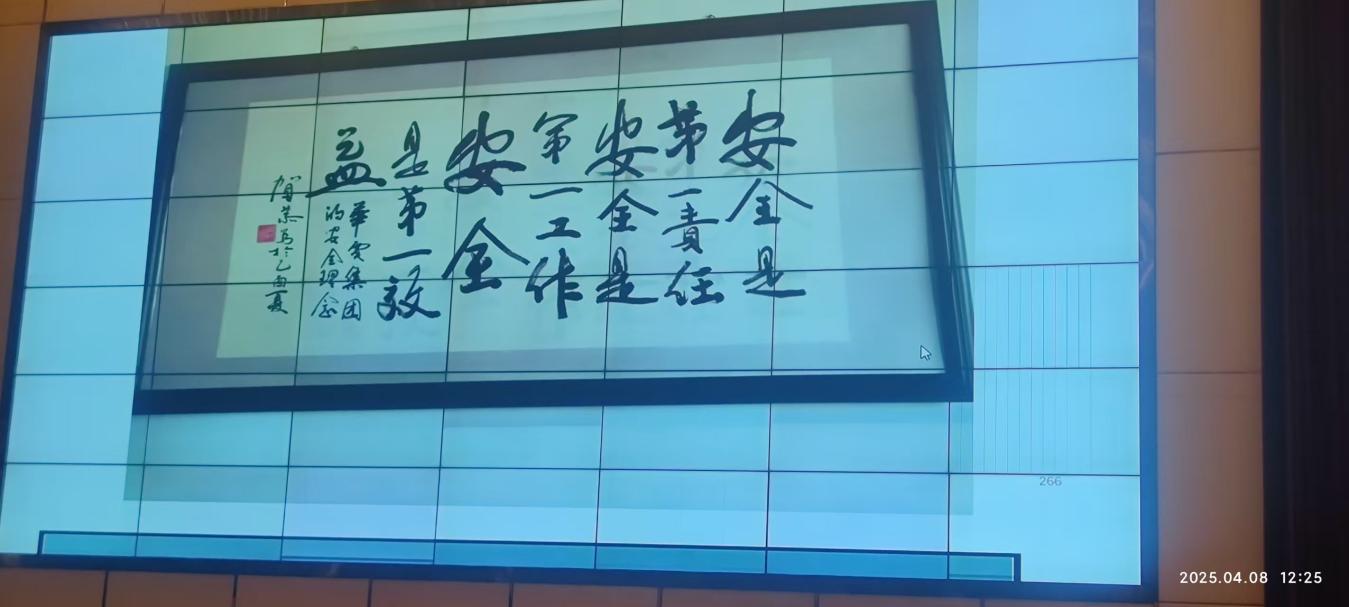 安全是
第一責任
安全是
第一工作
安全
是第一效
益
華 集团
的安全理念
賀 於乙酉夏
266
2025.04.08 12:25